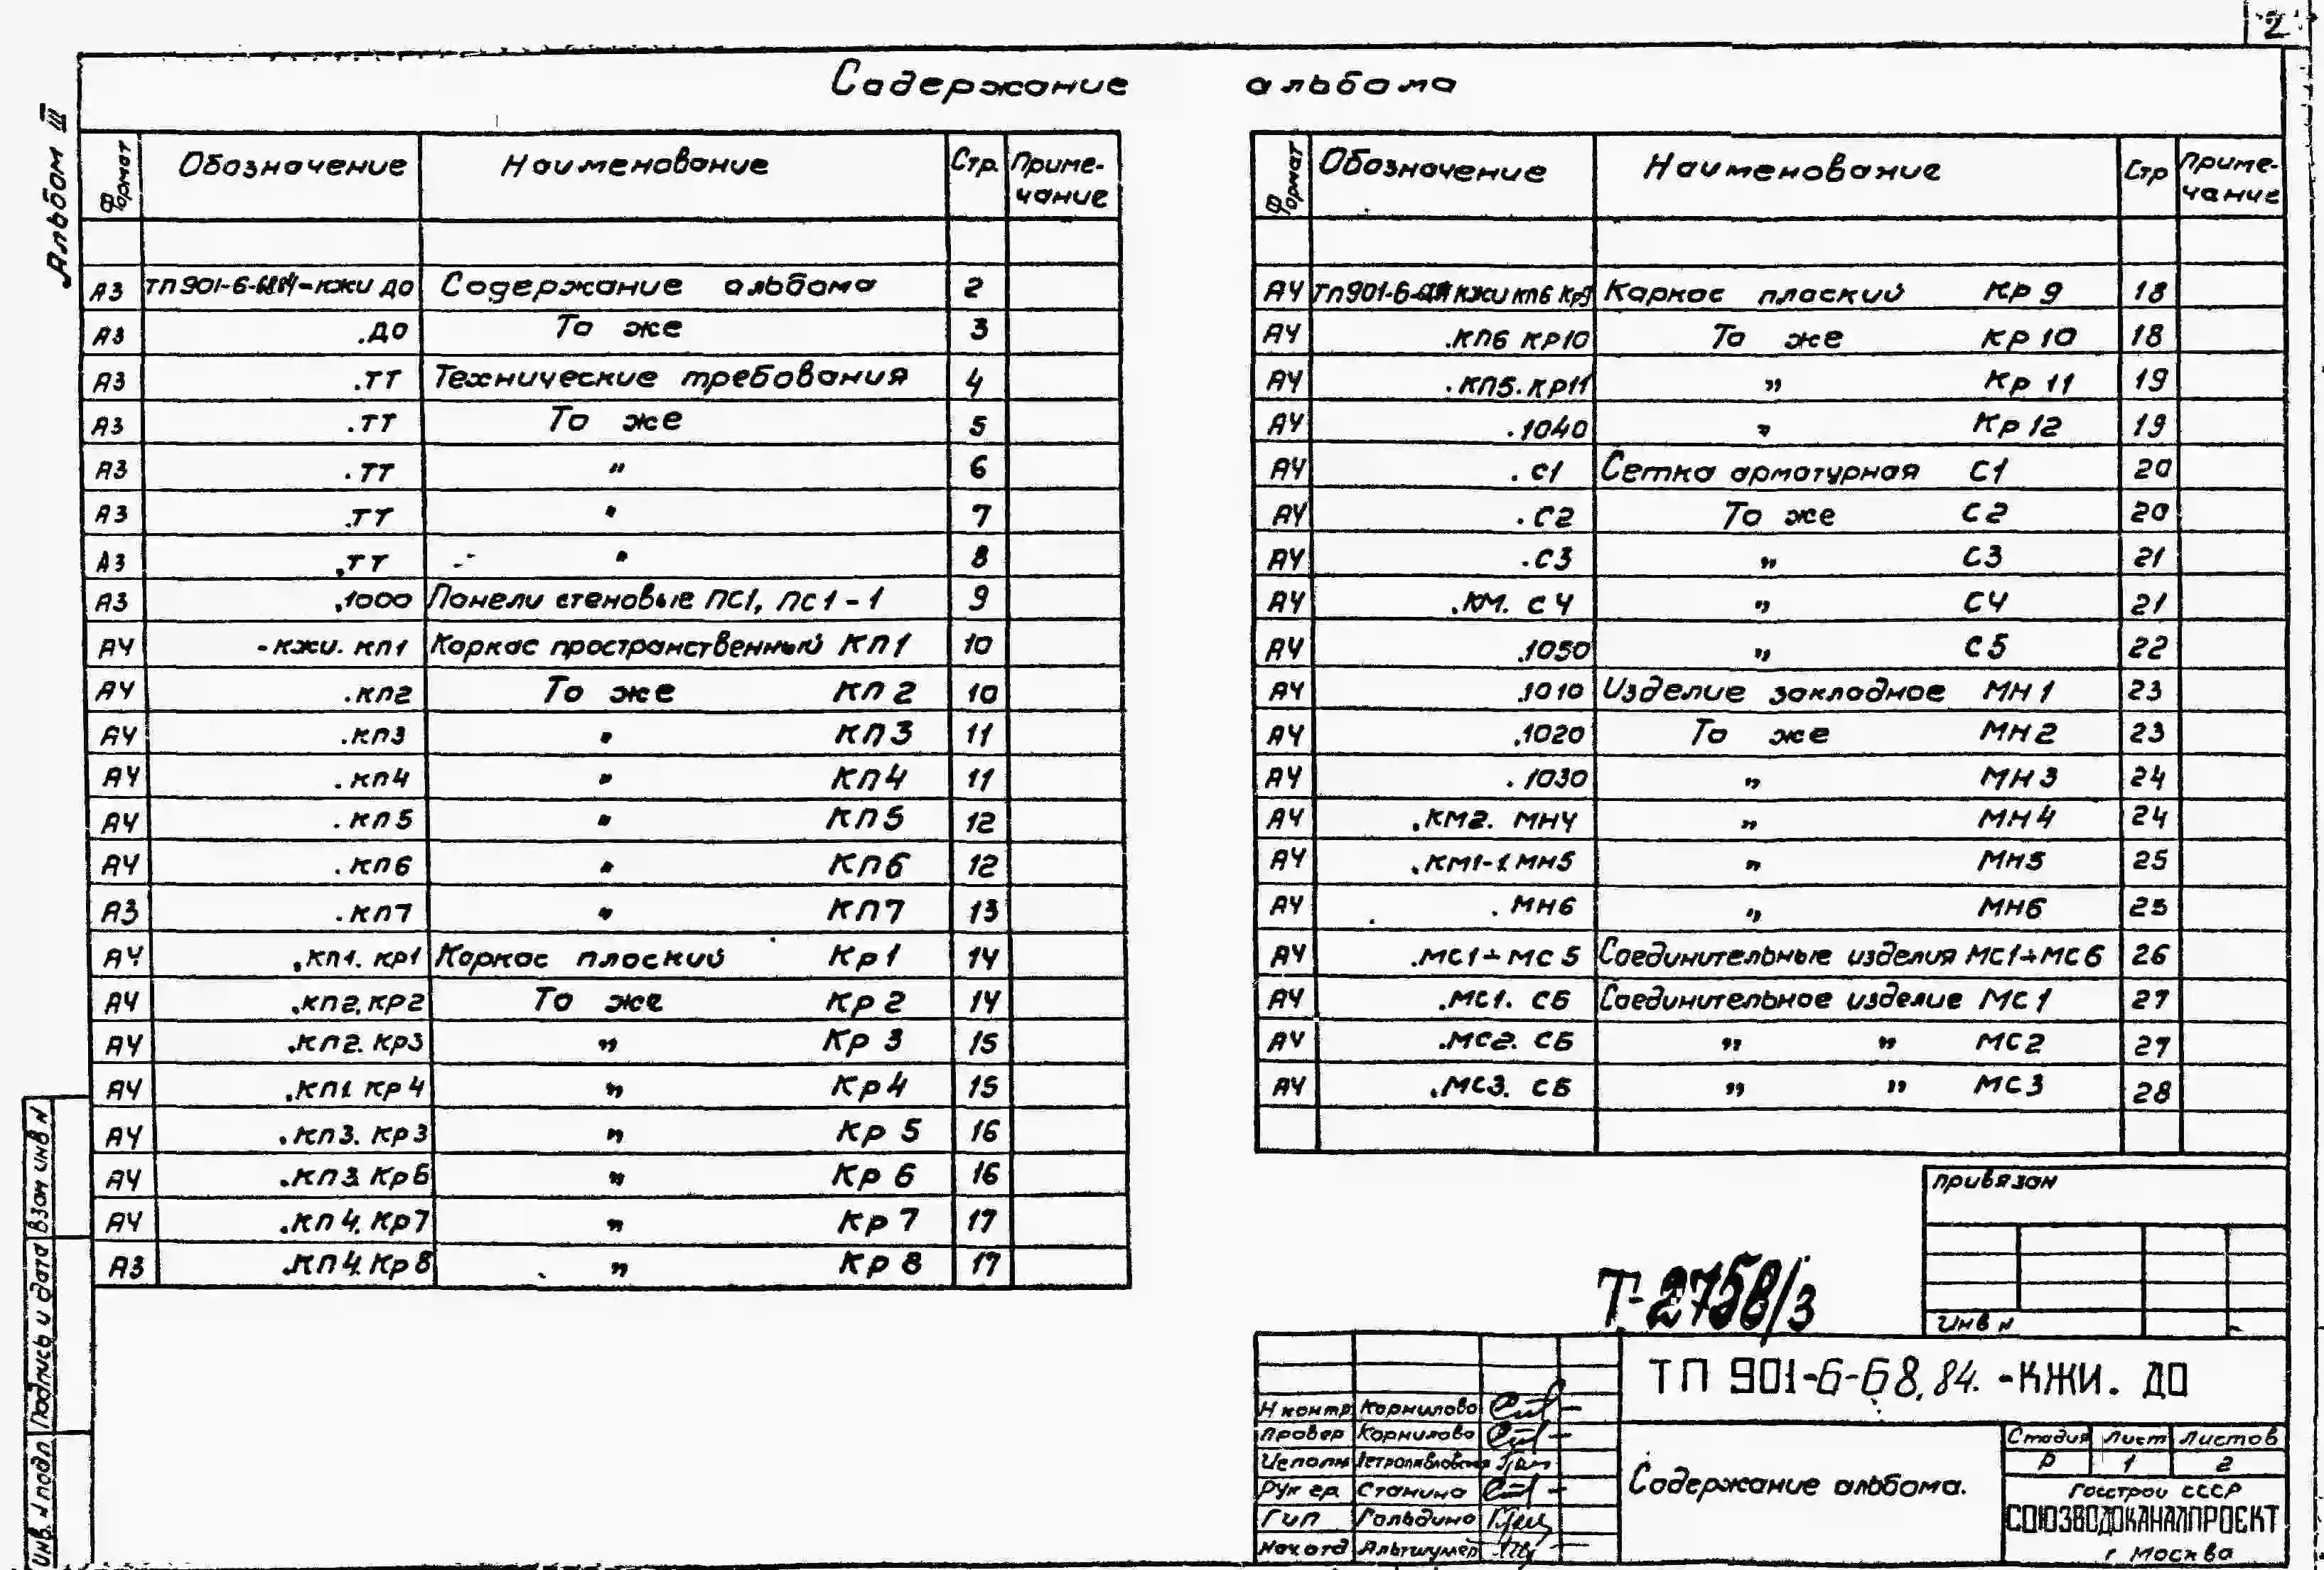 2
Содержание альбома
Альбом III
Формат Обозначение Наименование Стр. Примечание
А3 ТП901-6-68.84-КЖИ ДО Содержание альбома 2
А3 .ДО То же 3
А3 .ТТ Технические требования 4
А3 .ТТ То же 5
А3 .ТТ " 6
А3 .ТТ " 7
А3 .ТТ " 8
А3 .1000 Панели стеновые ПС1, ПС1-1 9
А4 -КЖИ. КП1 Каркас пространственный КП1 10
А4 .КП2 То же КП2 10
А4 .КП3 " КП3 11
А4 .КП4 " КП4 11
А4 .КП5 " КП5 12
А4 .КП6 " КП6 12
А3 .КП7 " КП7 13
А4 .КП1. КР1 Каркас плоский Кр1 14
А4 .КП2. КР2 То же Кр2 14
А4 .КП2. КР3 " Кр3 15
А4 .КП1 Кр4 " Кр4 15
А4 .КП3. Кр3 " Кр5 16
А4 .КП3 Кр6 " Кр6 16
А4 .КП4. Кр7 " Кр7 17
А3 .КП4. Кр8 " Кр8 17
Формат Обозначение Наименование Стр Примечание
А4 ТП901-6- КЖИ КП6 Кр9 Каркас плоский Кр9 18
А4 .КП6 КР10 То же Кр10 18
А4 .КП5. КР11 " Кр11 19
А4 .1040 " Кр12 19
А4 .С1 Сетка арматурная С1 20
А4 .С2 То же С2 20
А4 .С3 " С3 21
А4 .КМ. С4 " С4 21
А4 .1050 " С5 22
А4 .1010 Изделие закладное МН1 23
А4 .1020 То же МН2 23
А4 .1030 " МН3 24
А4 .КМ2. МН4 " МН4 24
А4 .КМ1-1 МН5 " МН5 25
А4 .МН6 " МН6 25
А4 .МС1÷МС5 Соединительные изделия МС1÷МС6 26
А4 .МС1. СБ Соединительное изделие МС1 27
А4 .МС2. СБ " " МС2 27
А4 .МС3. СБ " " МС3 28
Привязан
Инв N
Т-2758/3
ТП 901-6-68.84. -КЖИ. ДО
Н контр Корнилова
Провер Корнилова
Исполн Петропавловская
Рук гр. Станина
Гип Гольдина
Нач отд Альтшулер
Содержание альбома.
Стадия Лист Листов
Р 1 2
Госстрой СССР
СОЮЗВОДОКАНАЛПРОЕКТ
г Москва
Инв. N подл Подпись и дата Взам инв N